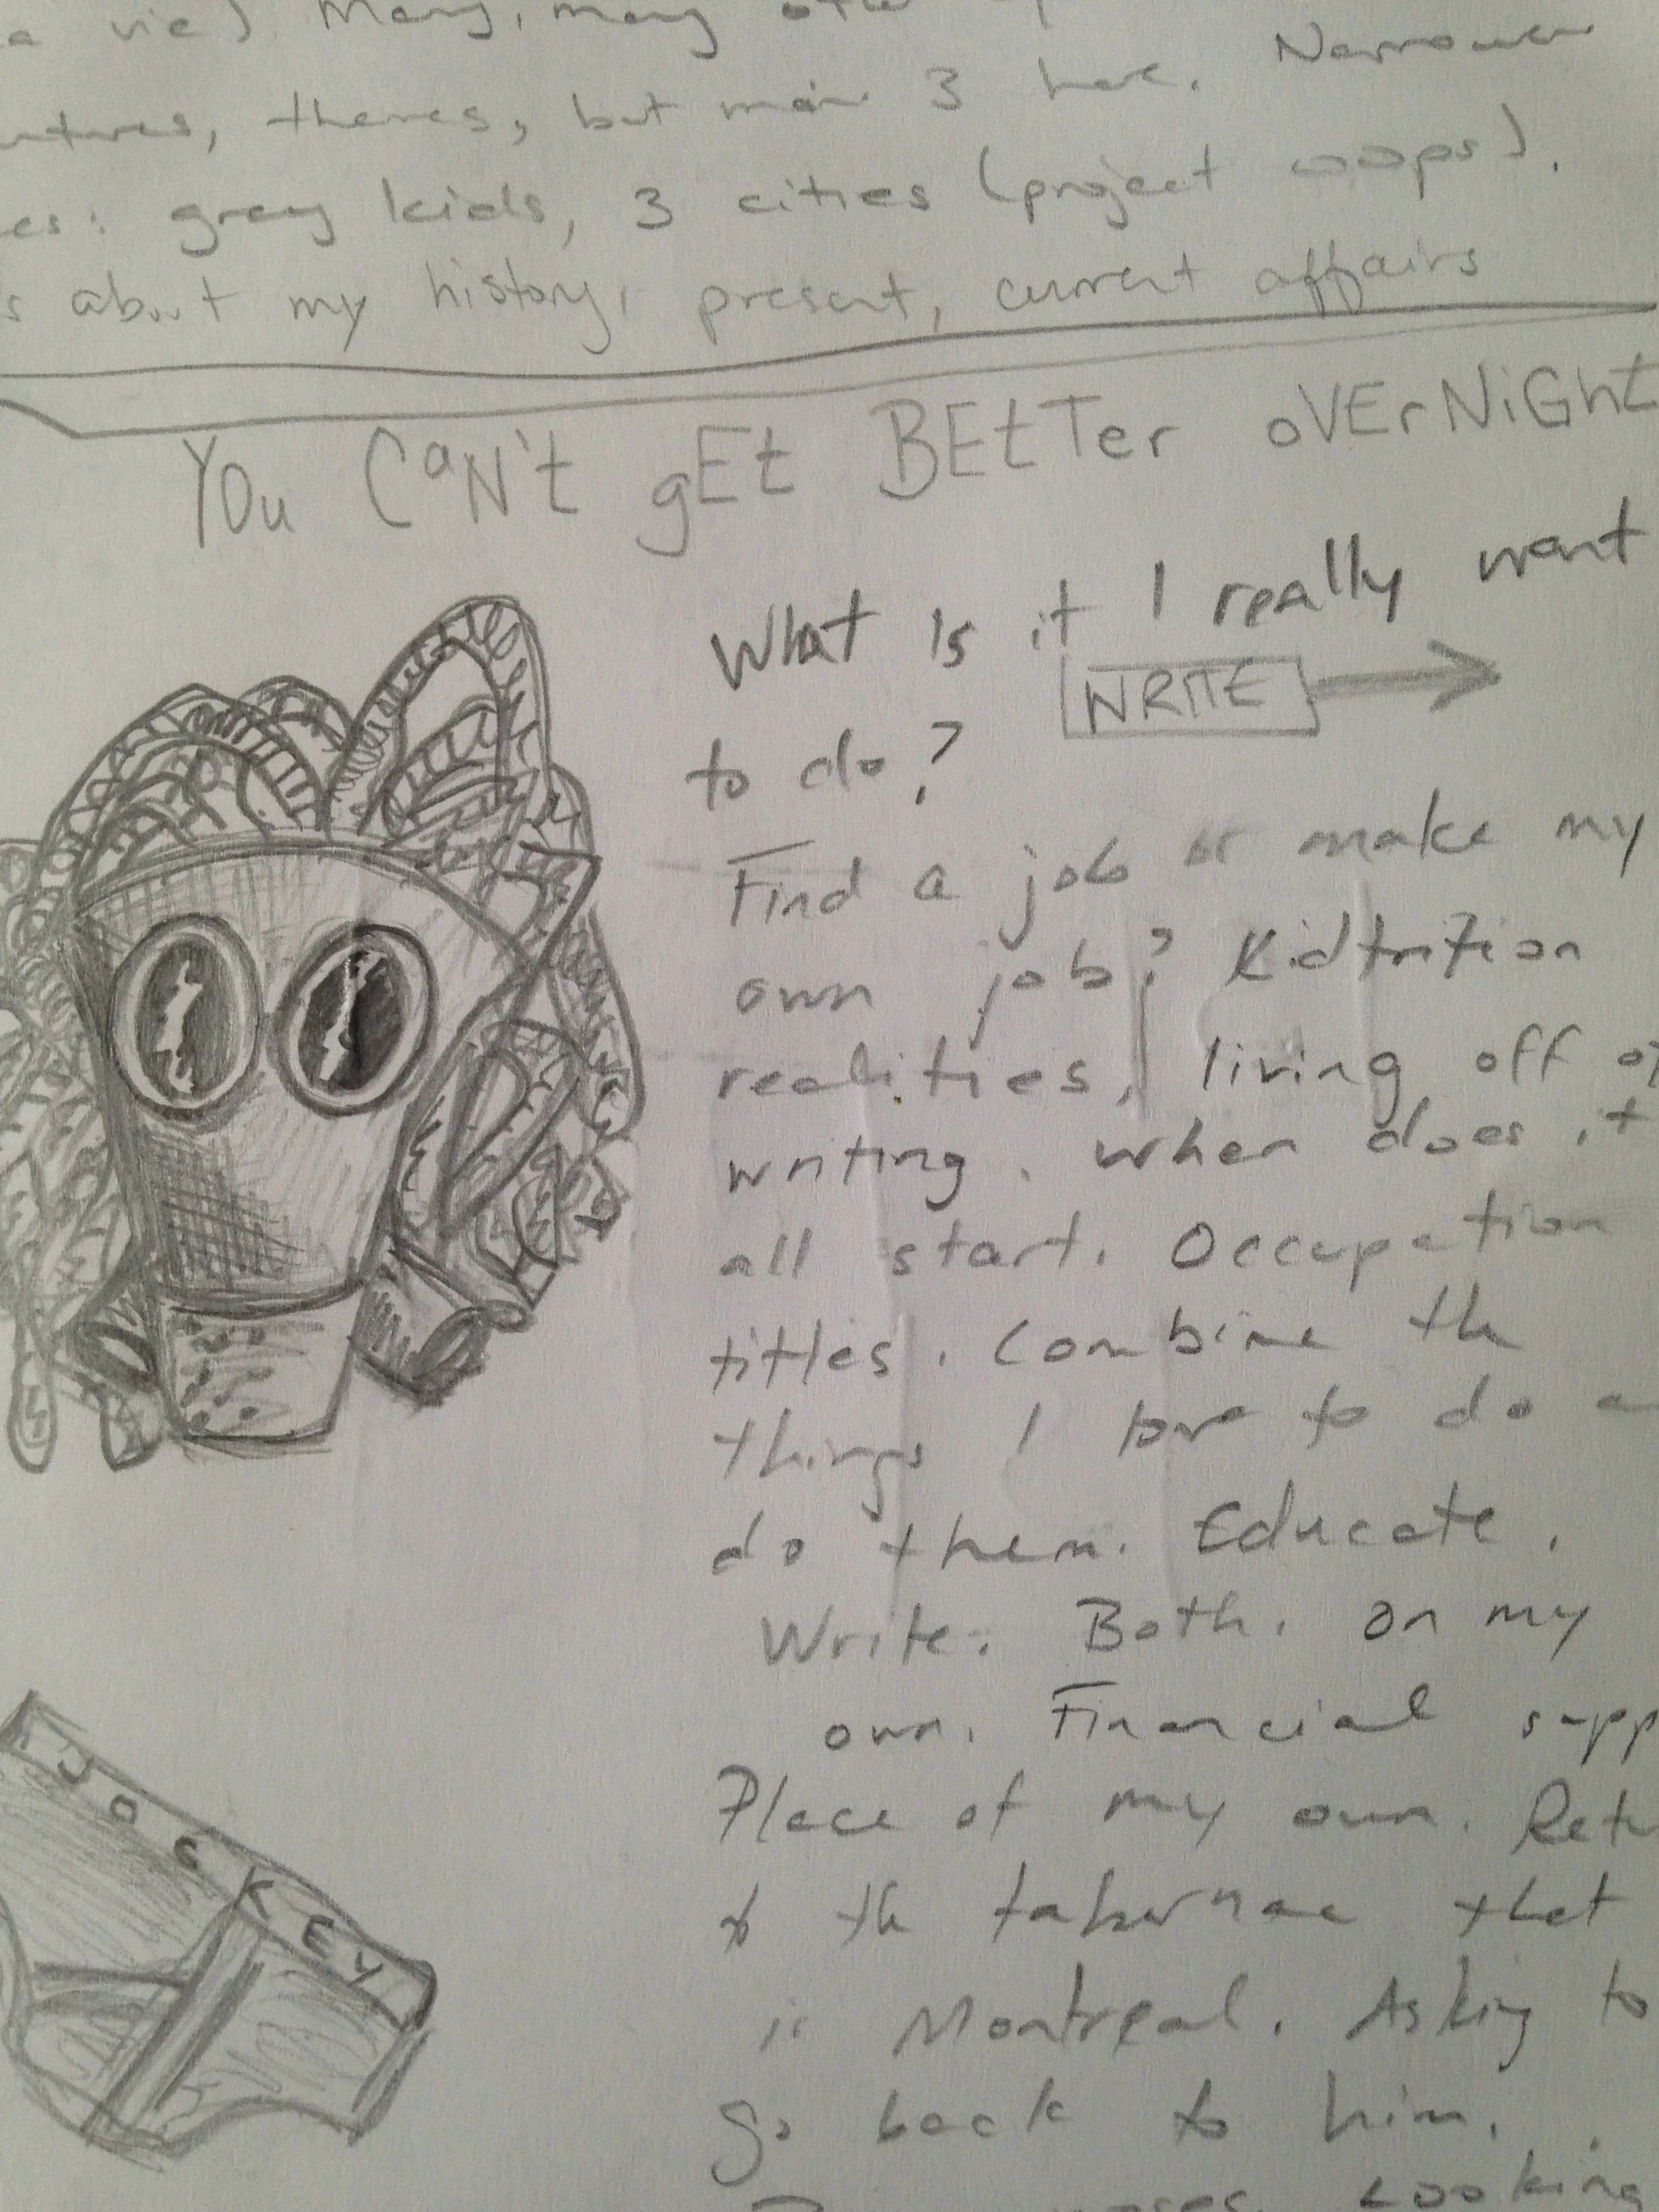 a vie). Many, many
themes, but main 3 here. Narrower
grey kids, 3 cities (project oops).
s about my history, present, current affairs
YOu CaN't gEt BEtTer oVErNiGht
What is it I really want
WRITE
to do?
Find a job or make my
own job? Kidtrition
realities, living off of
writing. When does it
all start. Occupation
titles. Combine the
things I love to do a
do them. Educate.
Write. Both. On my
own. Financial supp
Place of my own. Retu
to the that
is Montreal. Asking to
go back to him.
cooking
JOCKEY